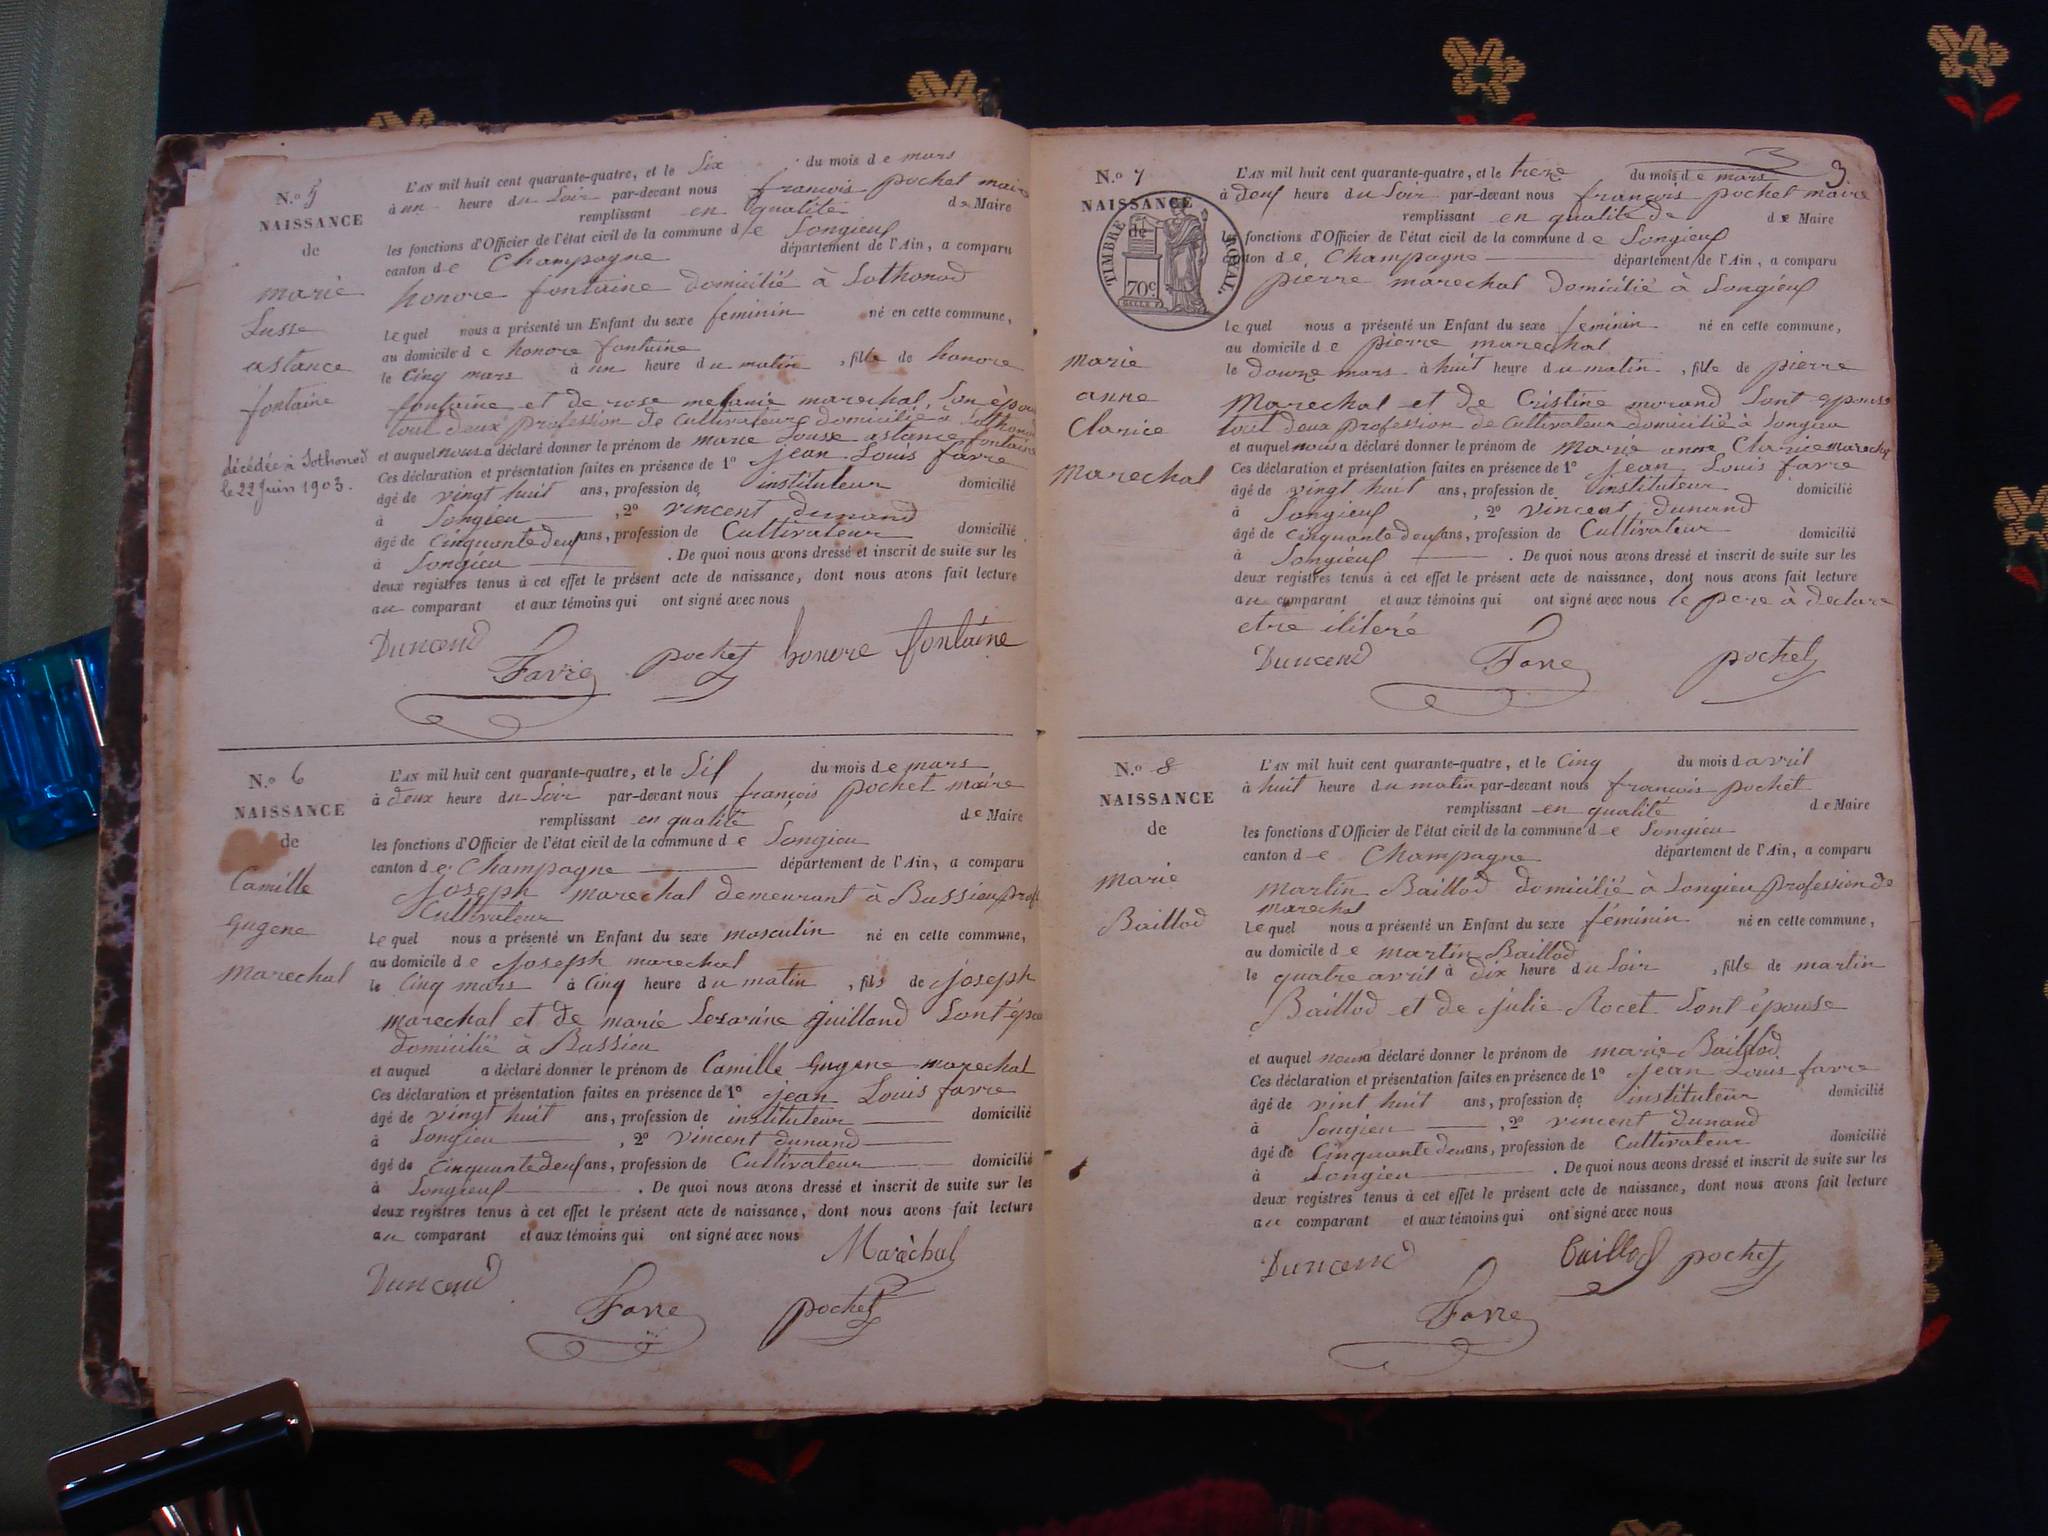 N.o 5
NAISSANCE
de
marie
Lusse
astance
fontaine
décédée à Sothonod
le 22 Juin 1903.
L'AN mil huit cent quarante-quatre, et le Six du mois de mars
à un heure du Soir par-devant nous francois pochet maire
remplissant en qualité de Maire
les fonctions d'Officier de l'état civil de la commune de Songieux
canton de Champagne département de l'Ain, a comparu
honore fontaine domicilié à Sothonod
Lequel nous a présenté un Enfant du sexe feminin né en cette commune,
au domicile de honore fontaine
le Cinq mars à un heure du matin, fille de honore
fontaine et de rose melanie marechal, Son épou
tout deux profession de Cultivateurs domicilié à Sothonod
et auquel nous a déclaré donner le prénom de marie Lousse astance fontaine
Ces déclaration et présentation faites en présence de 1° jean Louis favre
âgé de vingt huit ans, profession de instituteur domicilié
à Songieu, 2° vincent dunand
âgé de Cinquante deux ans, profession de Cultivateur domicilié
à Songieu. De quoi nous avons dressé et inscrit de suite sur les
deux registres tenus à cet effet le présent acte de naissance, dont nous avons fait lecture
au comparant et aux témoins qui ont signé avec nous
Dunand Favre pochet honore fontaine
N.o 6
NAISSANCE
de
Camille
Eugene
Marechal
L'AN mil huit cent quarante-quatre, et le Six du mois de mars
à deux heure du Soir par-devant nous françois pochet maire
remplissant en qualité de Maire
les fonctions d'Officier de l'état civil de la commune de Songieu
canton de Champagne département de l'Ain, a comparu
Joseph marechal demeurant à Bassieu prof
Cultivateur
Lequel nous a présenté un Enfant du sexe masculin né en cette commune,
au domicile de Joseph marechal
le Cinq mars à Cinq heure du matin, fils de Joseph
marechal et de marie guilland Sont épou
domicilié à Bassieu
et auquel a déclaré donner le prénom de Camille Eugene marechal
Ces déclaration et présentation faites en présence de 1° jean Louis favre
âgé de vingt huit ans, profession de instituteur domicilié
à Songieu, 2° vincent dunand
âgé de Cinquante deux ans, profession de Cultivateur domicilié
à Songieux. De quoi nous avons dressé et inscrit de suite sur les
deux registres tenus à cet effet le présent acte de naissance, dont nous avons fait lecture
au comparant et aux témoins qui ont signé avec nous
Maréchal
Dunand Favre pochet
3
N.o 7
NAISSANCE
de
TIMBRE ROYAL.
70c
marie
anne
Clarice
Marechal
L'AN mil huit cent quarante-quatre, et le treze du mois de mars
à deux heure du Soir par-devant nous françois pochet maire
remplissant en qualité de de Maire
les fonctions d'Officier de l'état civil de la commune de Songieux
canton de Champagne département de l'Ain, a comparu
pierre marechal domicilié à Songieux
Lequel nous a présenté un Enfant du sexe feminin né en cette commune,
au domicile de pierre marechal
le douze mars à huit heure du matin, fille de pierre
Marechal et de Cristine morand Sont epouse
tout deux profession de Cultivateur domicilié à Songieu
et auquel nous a déclaré donner le prénom de Marie anne Clarice marechal
Ces déclaration et présentation faites en présence de 1° jean Louis favre
âgé de vingt huit ans, profession de instituteur domicilié
à Songieux, 2° vincent Dunand
âgé de Cinquante deux ans, profession de Cultivateur domicilié
à Songieux. De quoi nous avons dressé et inscrit de suite sur les
deux registres tenus à cet effet le présent acte de naissance, dont nous avons fait lecture
au comparant et aux témoins qui ont signé avec nous le pere à declare
etre iliteré
Dunand Favre pochet
N.o 8
NAISSANCE
de
Marie
Baillod
L'AN mil huit cent quarante-quatre, et le Cinq du mois d avril
à huit heure du matin par-devant nous francois pochet
remplissant en qualité de Maire
les fonctions d'Officier de l'état civil de la commune de Songieu
canton de Champagne département de l'Ain, a comparu
Martin Baillod domicilié à Songieu profession de
marechal
Lequel nous a présenté un Enfant du sexe féminin né en cette commune,
au domicile de martin Baillod
le quatre avril à dix heure du Soir, fille de martin
Baillod et de julie Rocet Sont épouse
et auquel nous a déclaré donner le prénom de marie Baillod
Ces déclaration et présentation faites en présence de 1° jean Louis favre
âgé de vint huit ans, profession de instituteur domicilié
à Songieu, 2° vincent dunand
âgé de Cinquante deux ans, profession de Cultivateur domicilié
à Songieu. De quoi nous avons dressé et inscrit de suite sur les
deux registres tenus à cet effet le présent acte de naissance, dont nous avons fait lecture
au comparant et aux témoins qui ont signé avec nous
Dunand Baillod pochet
Favre